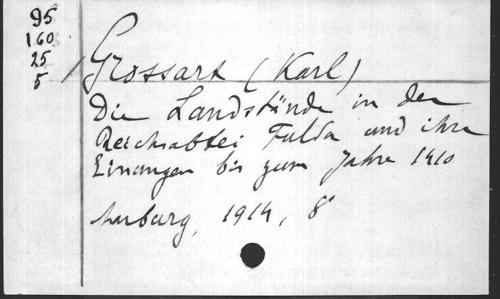 95
160
25
5
Grossart (Karl)
Die Landstände in der
Reichsabtei Fulda und ihre
Einungen bis zum Jahre 1410
Marburg, 1914, 8°